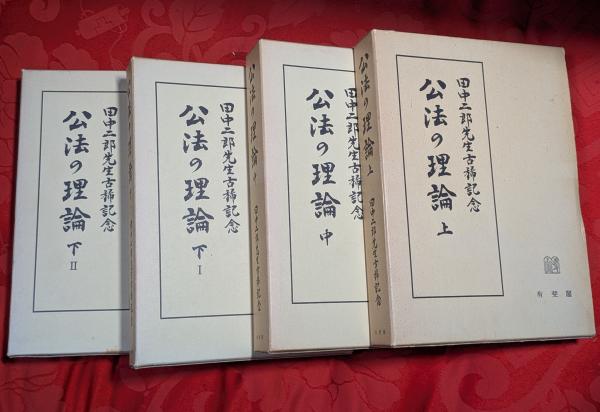 田中二郎先生古稀記念
公法の理論 上
有斐閣
公法の理論 上
田中二郎先生古稀記念
田中二郎先生古稀記念
公法の理論 中
公法の理論 中
田中二郎先生古稀記念
田中二郎先生古稀記念
公法の理論 下Ⅰ
田中二郎先生古稀記念
公法の理論 下Ⅱ